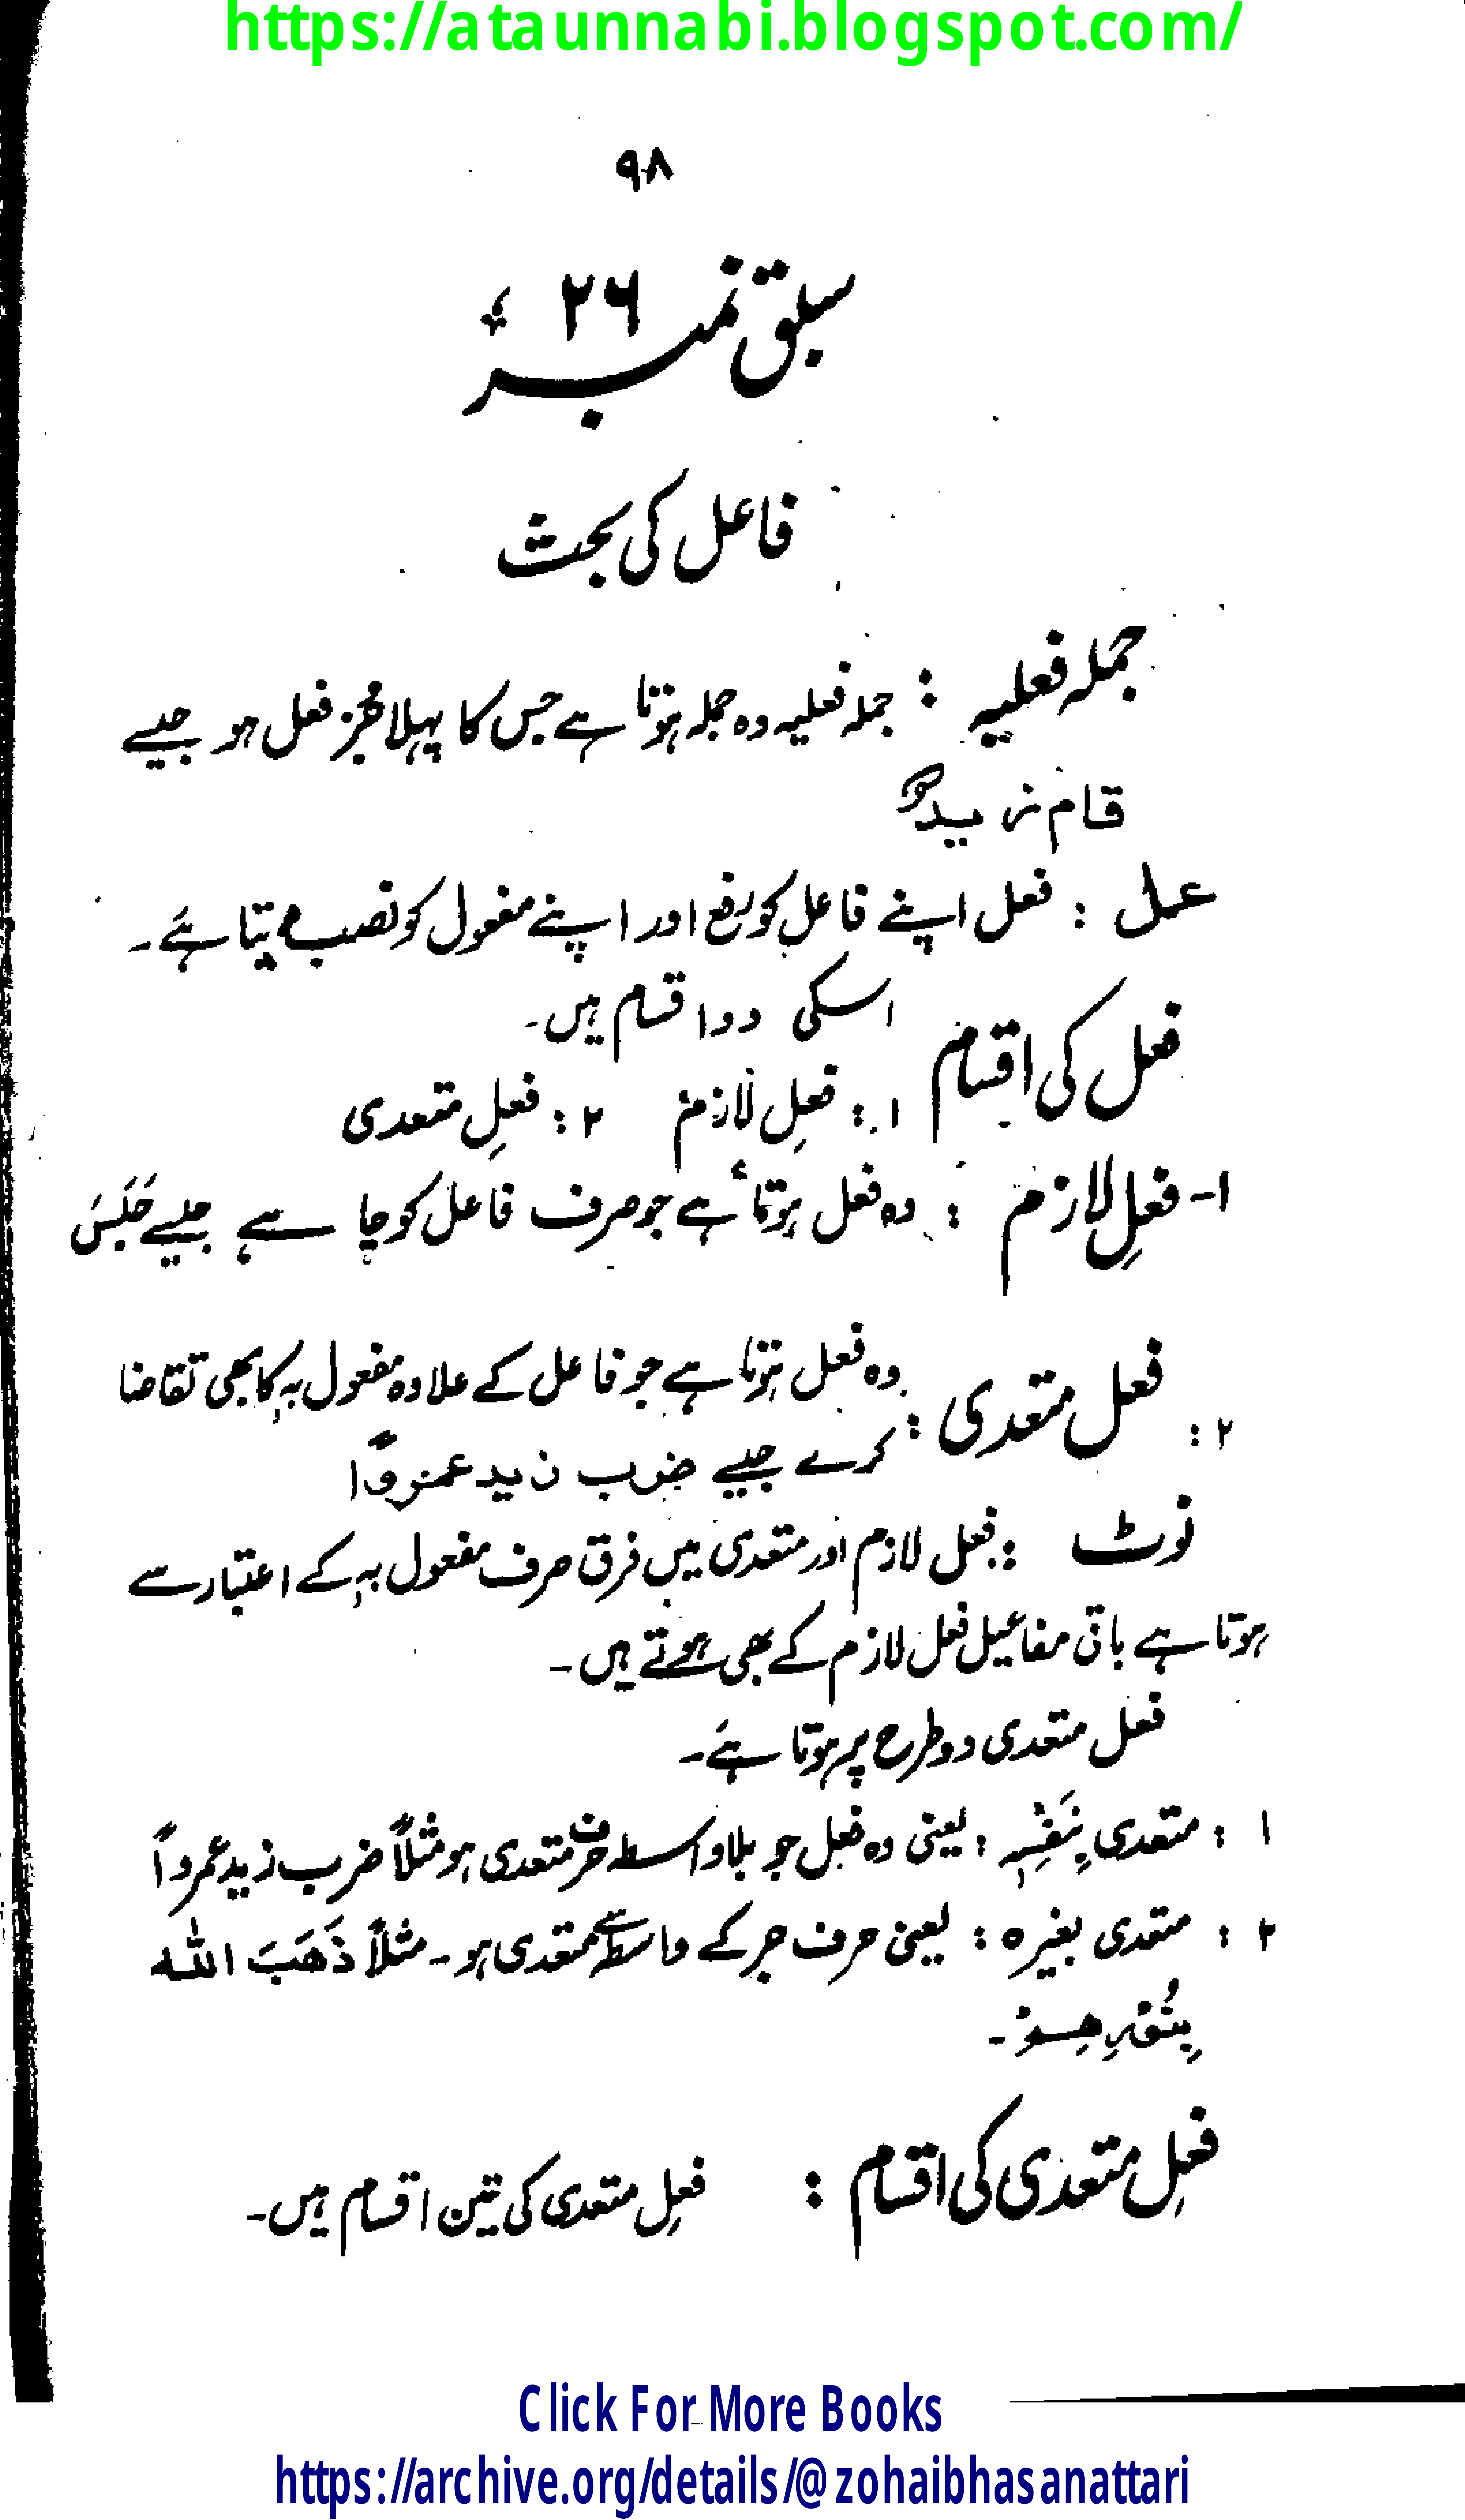 https://ataunnabi.blogspot.com/
۹۸
سبق نمبر ۲۶
فاعل کی بحث
جملہ فعلیہ : جملہ فعلیہ وہ جملہ ہوتا ہے جس کا پہلا جُز فعل ہو جیسے
قام زیدٌ
عمل : فعل اپنے فاعل کو رفع اور اپنے مفعول کو نصب دیتا ہے۔
فعل کی اقسام اسکی دو اقسام ہیں۔
۱ : فعلِ لازم ۲ : فعلِ متعدی
۱- فعلِ لازم : وہ فعل ہوتا ہے جو صرف فاعل کو چاہے جیسے جَلَسَ
۲ : فعل متعدی : وہ فعل ہوتا ہے جو فاعل کے علاوہ مفعول بہٖ کا بھی تقاضا
کرے جیسے ضرب زید عمرواً
نوٹ : فعل لازم اور متعدی میں فرق صرف مفعول بہٖ کے اعتبار سے
ہوتا ہے باقی مفاعیل فعل لازم کے بھی ہوتے ہیں۔
فعل متعدی دو طرح پر ہوتا ہے۔
۱ : متعدی بِنَفْسِہٖ : یعنی وہ فعل جو بلا واسطہ حرف متعدی ہو مثلاً ضرب زید عمرواً
۲ : متعدی بغیرہ : یعنی حرف جر کے واسطے سے متعدی ہو۔ مثلاً ذَھَبَ اللہ
بِنُوْرِھِمْ۔
فعلِ متعدی کی اقسام : فعلِ متعدی کی تین اقسام ہیں۔
Click For More Books
https://archive.org/details/@zohaibhasanattari